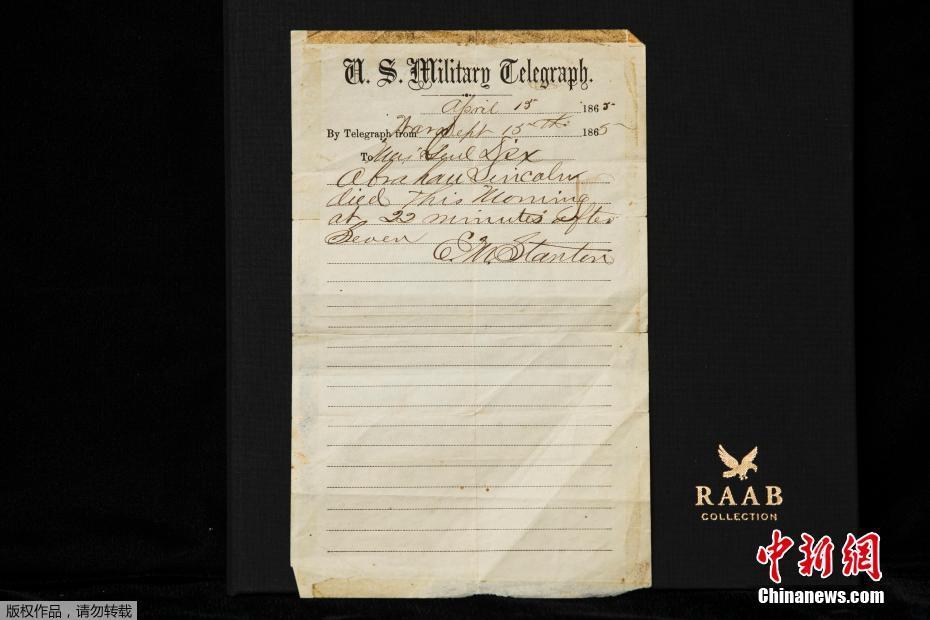 U. S. Military Telegraph.
April 15 1865
By Telegraph from War Dept 15th 1865
To Maj Genl Dix
Abraham Lincoln
died This Morning
at 22 minutes after
Seven
E. M. Stanton
RAAB
COLLECTION
中新網
Chinanews.com
版权作品,请勿转载